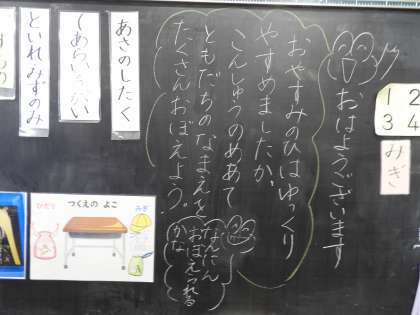 1 2
3 4
みぎ
おはようございます
おやすみのひはゆっくり
やすめましたか。
こんしゅうのめあて
ともだちのなまえを
たくさんおぼえよう。
なんにん
おぼえられる
かな
あさのしたく
といれみずのみ
つくえの よこ
ひだり
みぎ